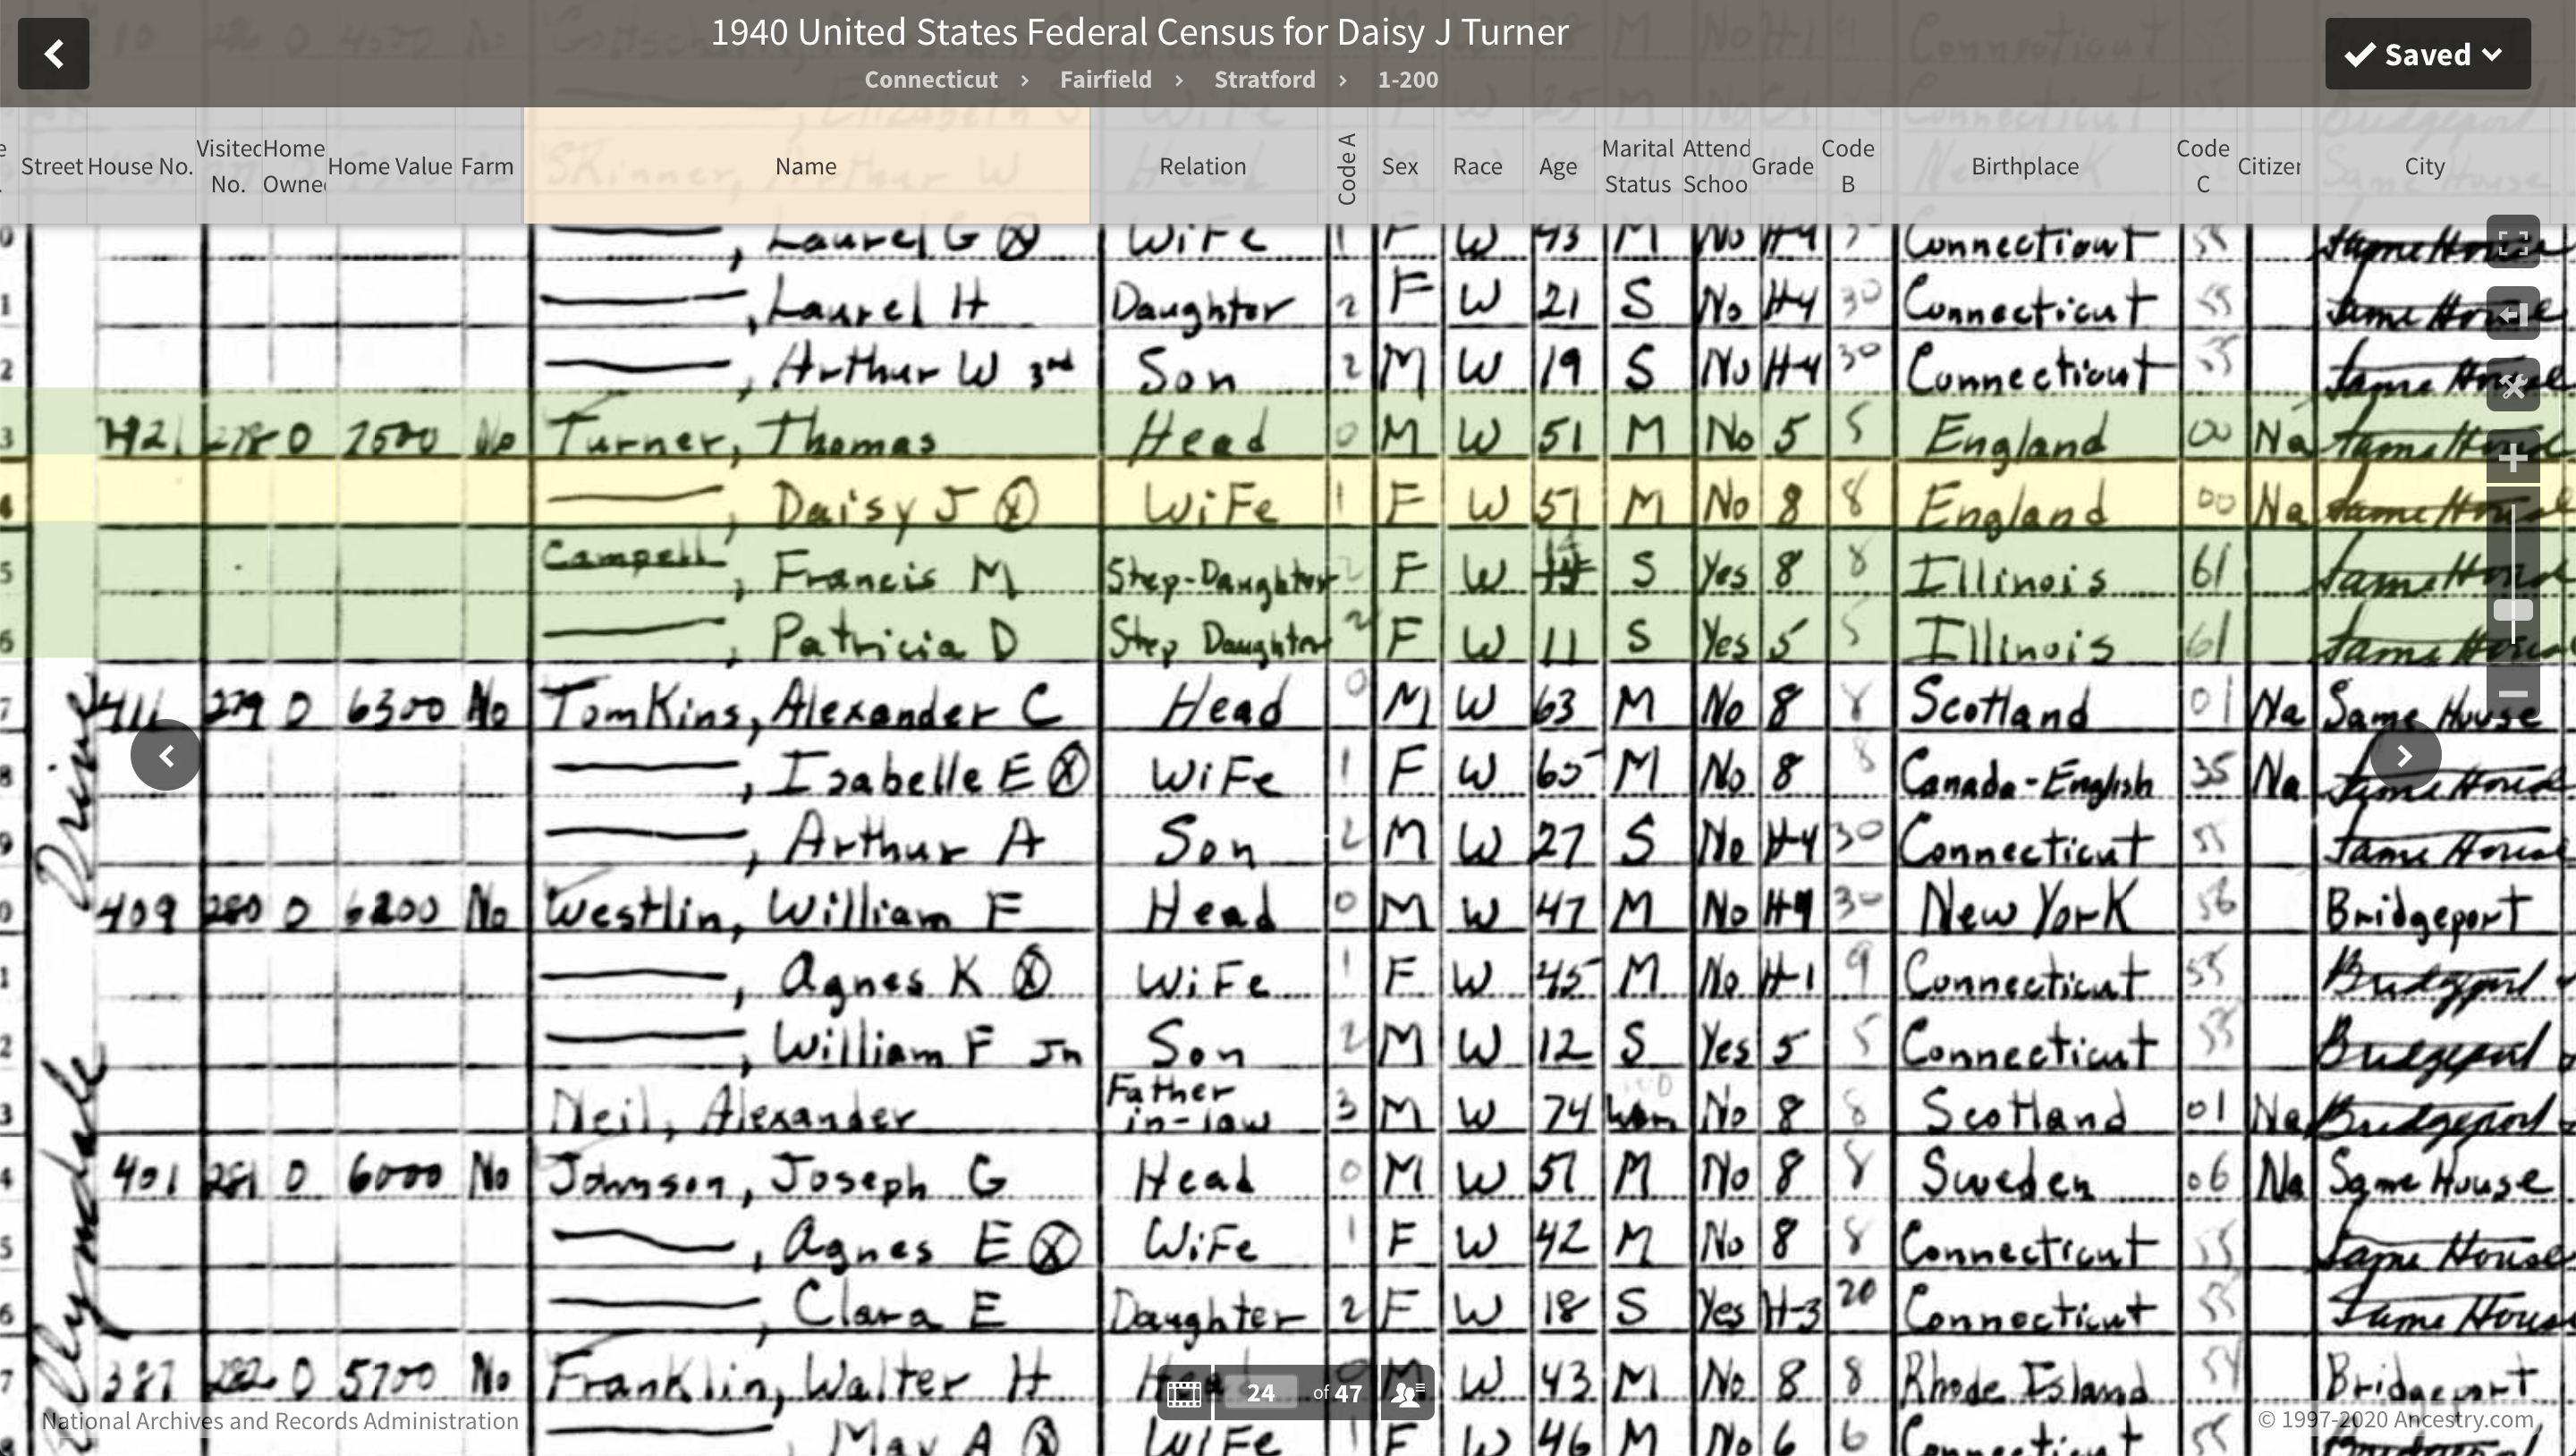 1940 United States Federal Census for Daisy J Turner
Connecticut › Fairfield › Stratford › 1-200
Saved
Street House No. Visited No. Home Owne Home Value Farm Name Relation Code A Sex Race Age Marital Status Attend Schoo Grade Code B Birthplace Code C Citizen City
0 ——, Laurel G ⓧ Wife 1 F W 43 M No H-4 30 Connecticut 55 Same House
1 ——, Laurel H Daughter 2 F W 21 S No H-4 30 Connecticut 55 Same House
2 ——, Arthur W 3rd Son 2 M W 19 S No H-4 30 Connecticut 55 Same House
3 421 278 O 7500 No Turner, Thomas Head 0 M W 51 M No 5 5 England 00 Na Same House
4 ——, Daisy J ⓧ Wife 1 F W 51 M No 8 8 England 00 Na Same House
5 Campell, Francis M Step-Daughter 2 F W 14 S Yes 8 8 Illinois 61 Same House
6 ——, Patricia D Step Daughter 2 F W 11 S Yes 5 5 Illinois 61 Same House
7 411 279 O 6300 No TomKins, Alexander C Head 0 M W 63 M No 8 8 Scotland 01 Na Same House
8 ——, Isabelle E ⓧ Wife 1 F W 65 M No 8 8 Canada-English 35 Na Same House
9 ——, Arthur A Son 2 M W 27 S No H-4 30 Connecticut 55 Same House
0 409 280 O 6200 No Westlin, William F Head 0 M W 47 M No H-4 30 New York 56 Bridgeport
1 ——, Agnes K ⓧ Wife 1 F W 45 M No H-1 9 Connecticut 55 Bridgeport
2 ——, William F Jr Son 2 M W 12 S Yes 5 5 Connecticut 55 Bridgeport
3 Neil, Alexander Father in-law 3 M W 74 No 8 8 Scotland 01 Na Bridgeport
4 401 281 O 6000 No Johnson, Joseph G Head 0 M W 51 M No 8 8 Sweden 06 Na Same House
5 ——, Agnes E ⓧ Wife 1 F W 42 M No 8 8 Connecticut 55 Same House
6 ——, Clara E Daughter 2 F W 18 S Yes H-3 20 Connecticut 55 Same House
7 387 282 O 5700 No Franklin, Walter H Head 0 M W 43 M No 8 8 Rhode Island 54 Bridgeport
——, May A ⓧ Wife 1 F W 46 M No 6 6 Connecticut 55
Drive
24 of 47
National Archives and Records Administration
© 1997-2020 Ancestry.com